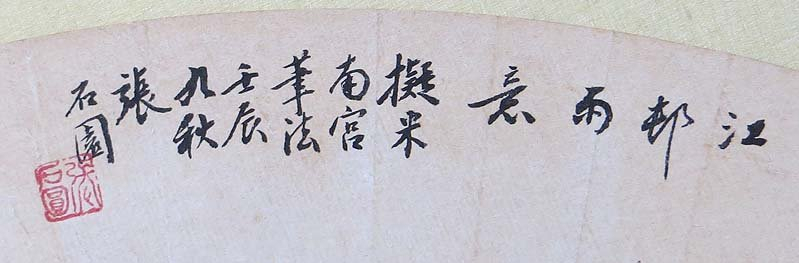 江邨雨意
擬米
南宮
筆法
壬辰
九秋
張
石園
張石園